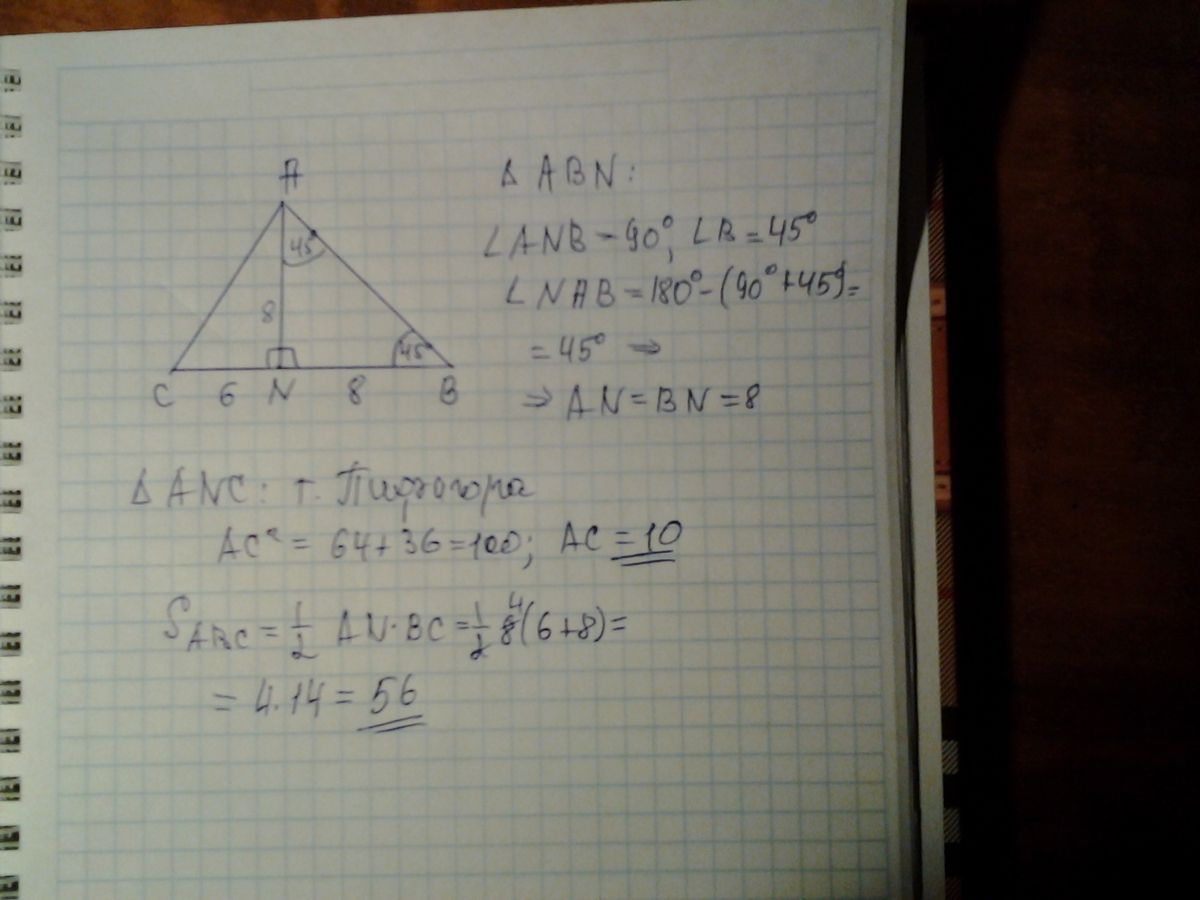 A
45°
8
45°
C 6 N 8 B
Δ ABN:
∠ANB = 90°, ∠B = 45°
∠NAB = 180° - (90° + 45°) =
= 45° ⇒
⇒ AN = BN = 8
Δ ANC: т. Пифагора
AC² = 64 + 36 = 100; AC = 10
S ABC = 1/2 AN · BC = 1/2 8 4 (6+8) =
= 4 · 14 = 56